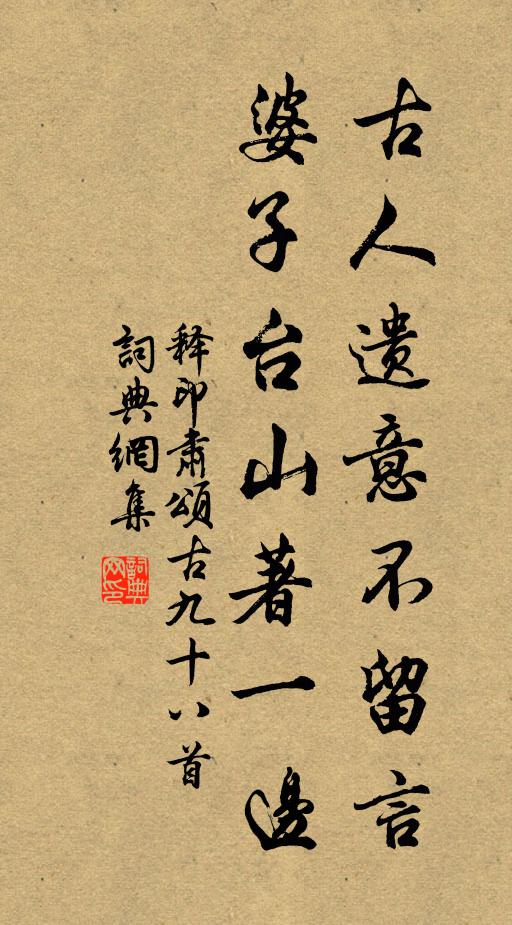 古人遗意不留言
婆子台山著一邊
释印肃頌古九十八首
詞典網集
詞典網印